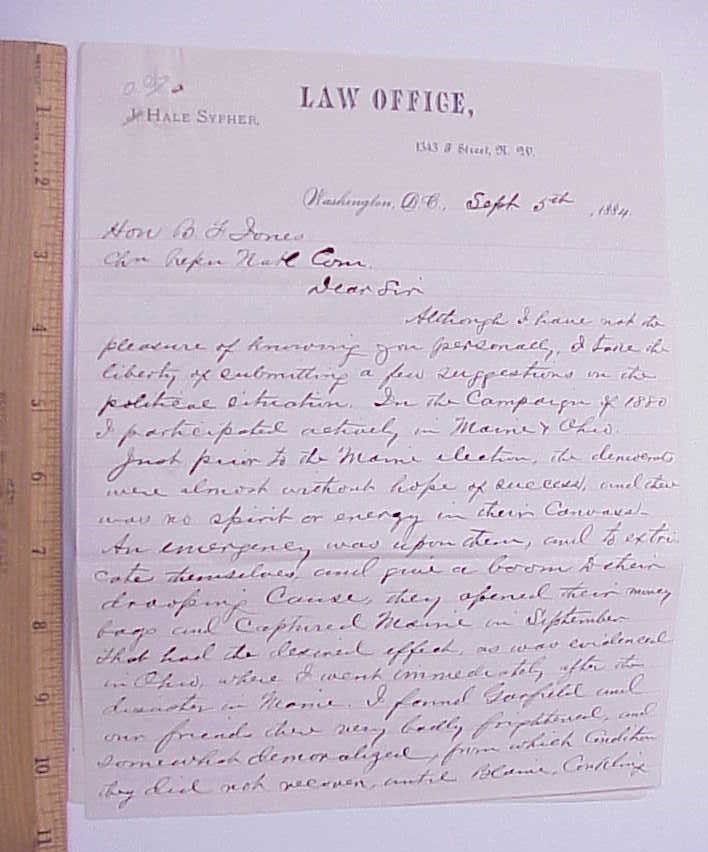 LAW OFFICE,
J. HALE SYPHER,
1343 F Street, N. W.
Washington, D.C., Sept 5th, 1884.
Hon B F Jones
Chn Repn Natl Com.
Dear Sir
Although I have not the
pleasure of knowing you personally, I take the
liberty of submitting a few suggestions on the
political situation. In the Campaign of 1880
I participated actively in Maine & Ohio.
Just prior to the Maine election, the democrats
were almost without hope of success, and there
was no spirit or energy in their Canvass.
An emergency was upon them, and to extri-
cate themselves, and give a boom to their
drooping Cause, they opened their money
bags and Captured Maine in September
that had the desired effect, as was evidenced
in Ohio, where I went immediately after the
disaster in Maine. I found Garfield and
our friends there very badly frightened, and
somewhat demoralized, from which Condition
they did not recover, until Blaine, Conkling
1
2
3
4
5
6
7
8
9
10
11